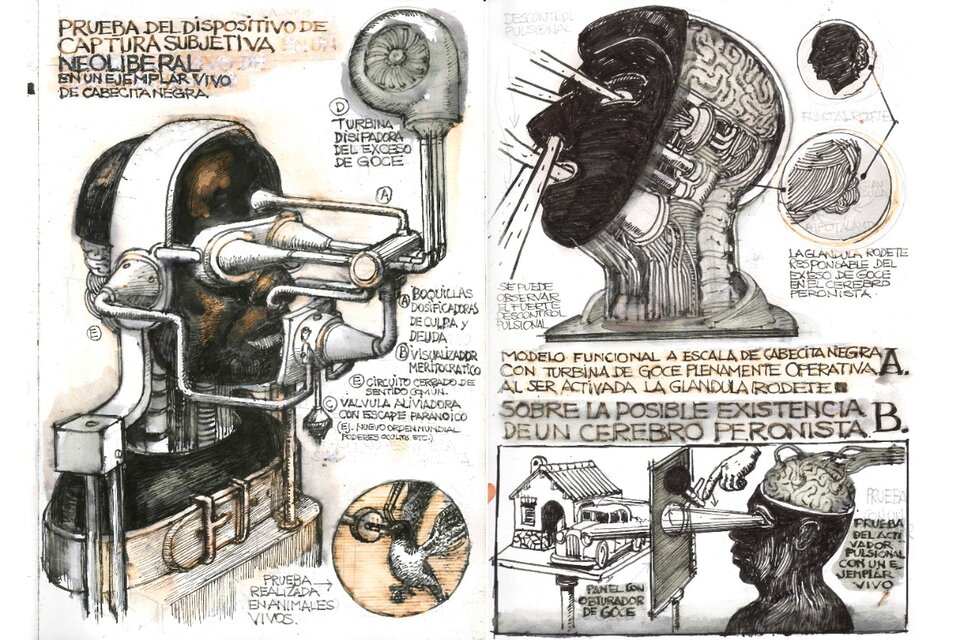 PRUEBA DEL DISPOSITIVO DE
CAPTURA SUBJETIVA
NEOLIBERAL
EN UN EJEMPLAR VIVO
DE CABECITA NEGRA
D
TURBINA
DISIPADORA
DEL EXCESO
DE GOCE
A
A BOQUILLAS
DOSIFICADORAS
DE CULPA Y
DEUDA
B VISUALIZADOR
MERITOCRATICO
E CIRCUITO CERRADO DE
SENTIDO COMUN.
C VALVULA ALIVIADORA
CON ESCAPE PARANOICO
(EJ. NUEVO ORDEN MUNDIAL
PODERES OCULTOS ETC.)
E
PRUEBA
REALIZADA
EN ANIMALES
VIVOS.
DESCONTROL
PULSIONAL
SE PUEDE
OBSERVAR
EL FUERTE
DESCONTROL
PULSIONAL
RODETE
LA GLANDULA RODETE
RESPONSABLE DEL
EXCESO DE GOCE
EN EL CEREBRO
PERONISTA.
MODELO FUNCIONAL A ESCALA DE CABECITA NEGRA A.
CON TURBINA DE GOCE PLENAMENTE OPERATIVA
AL SER ACTIVADA LA GLANDULA RODETE
SOBRE LA POSIBLE EXISTENCIA B.
DE UN CEREBRO PERONISTA
PANEL CON
OBTURADOR
DE GOCE
PRUEBA
PRUEBA
DEL ACTI
VADOR
PULSIONAL
CON UN E
JEMPLAR
VIVO